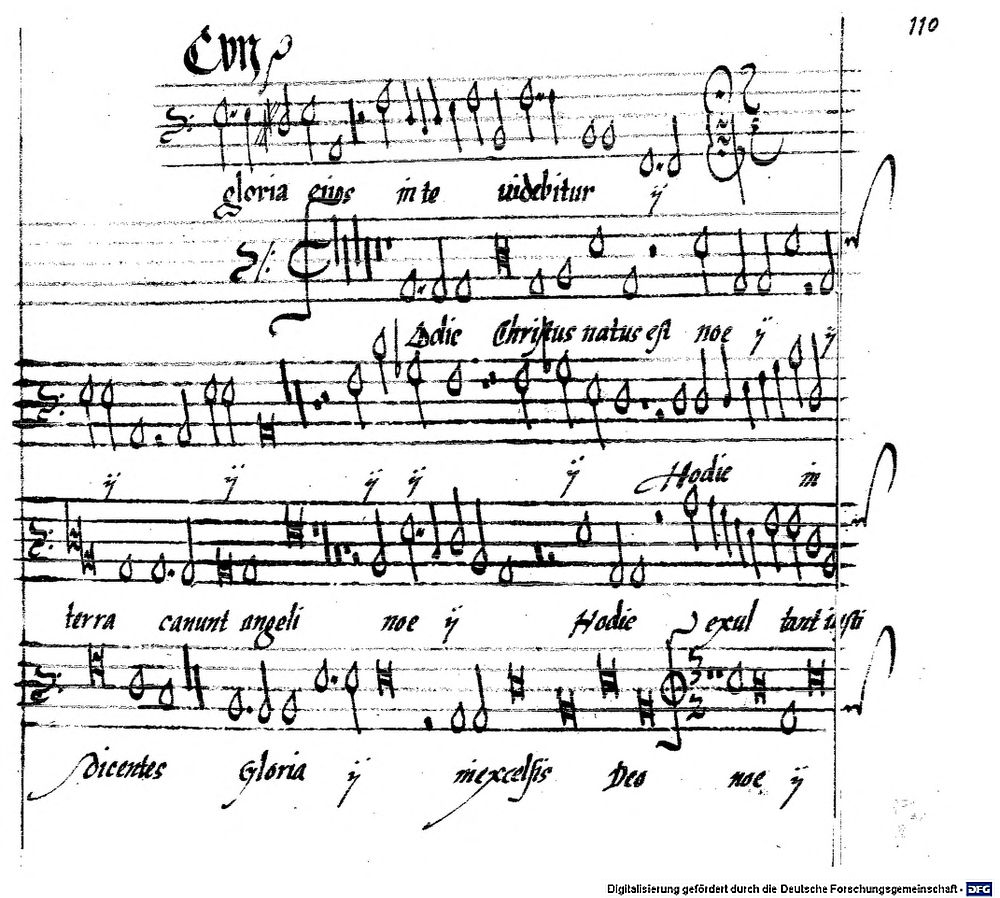 110
gloria eius in te uidebitur ij
Odie Christus natus est noe ij ij
ij ij ij ij ij Hodie in
terra canunt angeli noe ij Hodie exul tant iusti
Dicentes Gloria ij in excelsis Deo noe ij
Digitalisierung gefördert durch die Deutsche Forschungsgemeinschaft - DFG